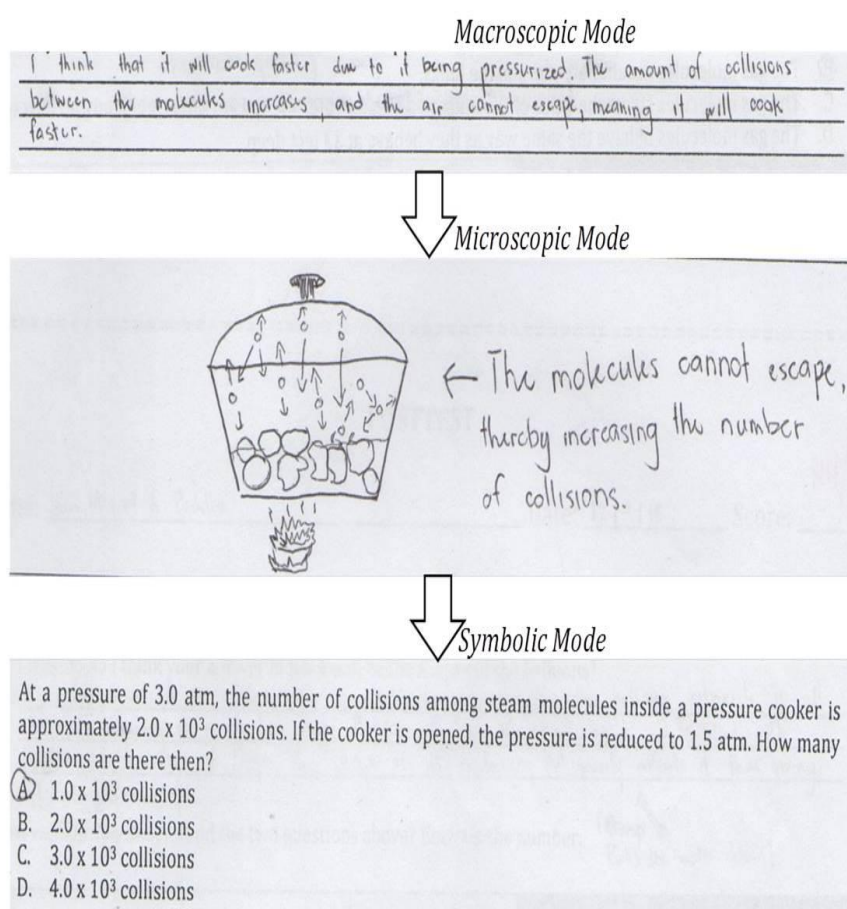 Macroscopic Mode
I think that it will cook faster due to it being pressurized. The amount of collisions
between the molecules increases, and the air cannot escape, meaning it will cook
faster.
Microscopic Mode
← The molecules cannot escape,
thereby increasing the number
of collisions.
Symbolic Mode
At a pressure of 3.0 atm, the number of collisions among steam molecules inside a pressure cooker is
approximately 2.0 x 10³ collisions. If the cooker is opened, the pressure is reduced to 1.5 atm. How many
collisions are there then?
A. 1.0 x 10³ collisions
B. 2.0 x 10³ collisions
C. 3.0 x 10³ collisions
D. 4.0 x 10³ collisions